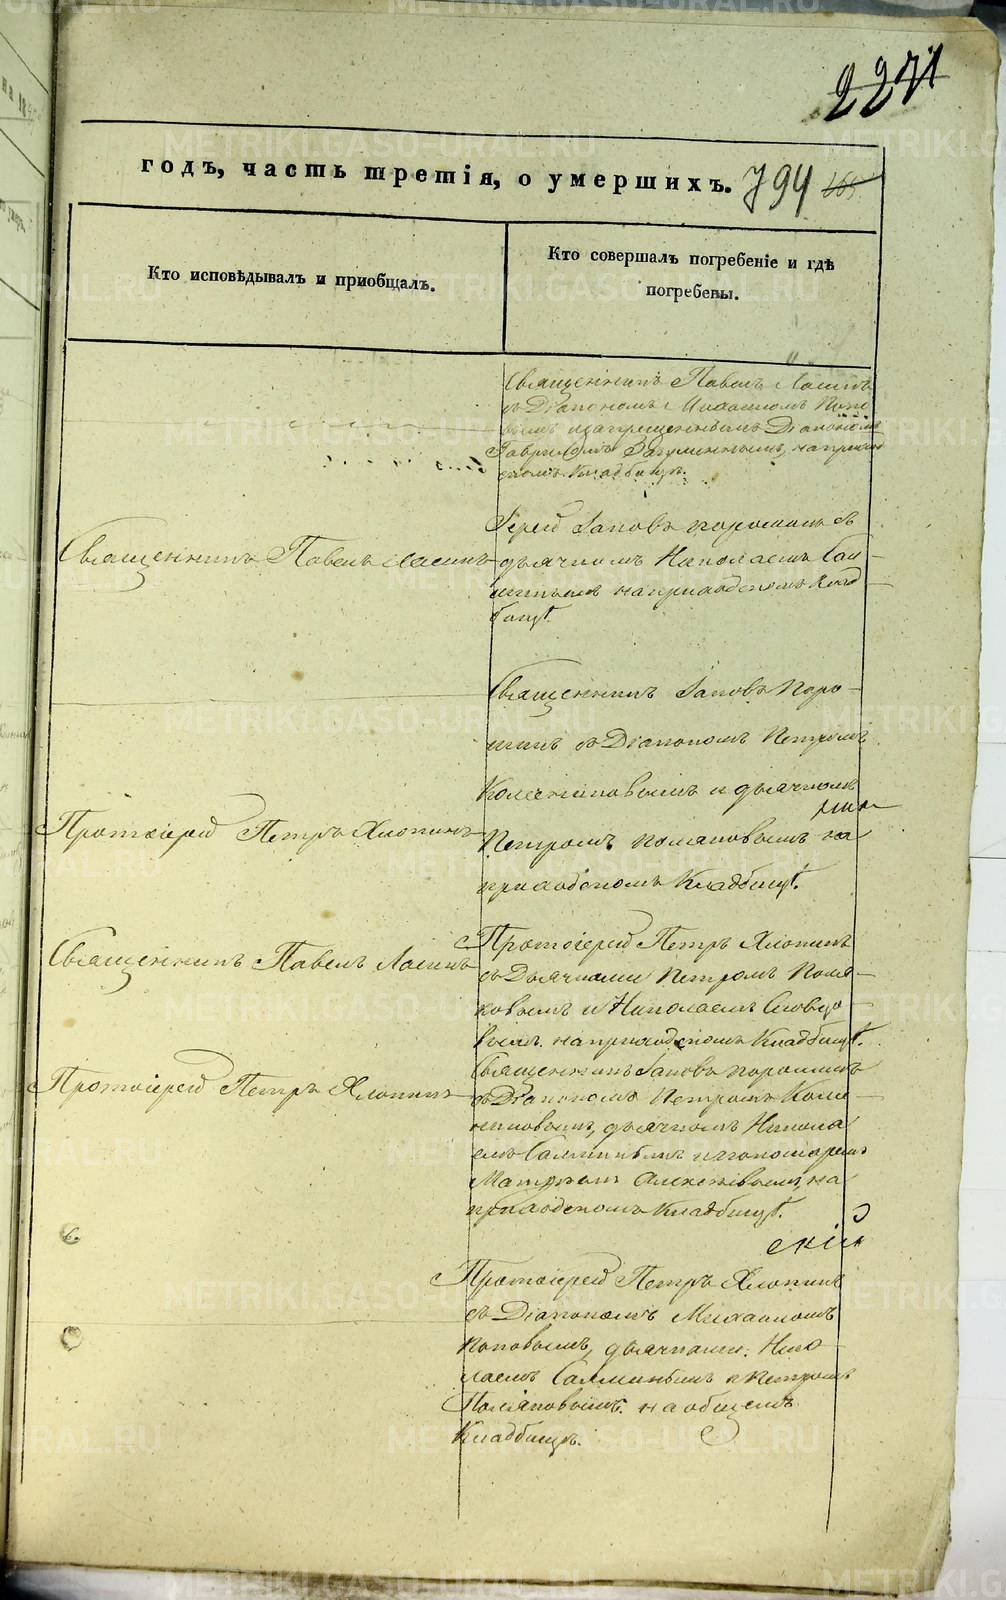 2271
годъ, часть третія, о умершихъ. 794
Кто исповѣдывалъ и приобщалъ.
Кто совершалъ погребеніе и гдѣ
погребены.
Священникъ Павелъ Ласинъ
съ Діакономъ Михаиломъ Попо
вымъ и запрещеннымъ Діакономъ
Гавриломъ на приход
скомъ Кладбищѣ.
Священникъ Павелъ Ласинъ
Іерей Іаковъ Порошинъ съ
дьячкомъ Николаемъ
на приходскомъ Клад
бищѣ.
Протоіерей Петръ Хлопинъ
Священникъ Іаковъ Поро-
шинъ съ Діакономъ Петромъ
и дьячкомъ
Петромъ Поляковымъ на
приходскомъ Кладбищѣ.
Священникъ Павелъ Ласинъ
Протоіерей Петръ Хлопинъ
съ Дьячками Петромъ Поля-
ковымъ и Николаемъ Словцо
вымъ на приходскомъ Кладбищѣ.
Протоіерей Петръ Хлопинъ
Священникъ Іаковъ Порошинъ
съ Діакономъ Петромъ
дьячкомъ Никола
емъ и пономаремъ
на
приходскомъ Кладбищѣ.
Протоіерей Петръ Хлопинъ
съ Діакономъ Михаиломъ
Поповымъ, дьячками: Нико
лаемъ и Петромъ
Поляковымъ на общемъ
Кладбищѣ.
METRIKI.GASO-URAL.RU